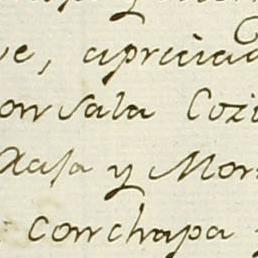 ve, apreciad
con sala Cozi
Casa y Mor
conchapa